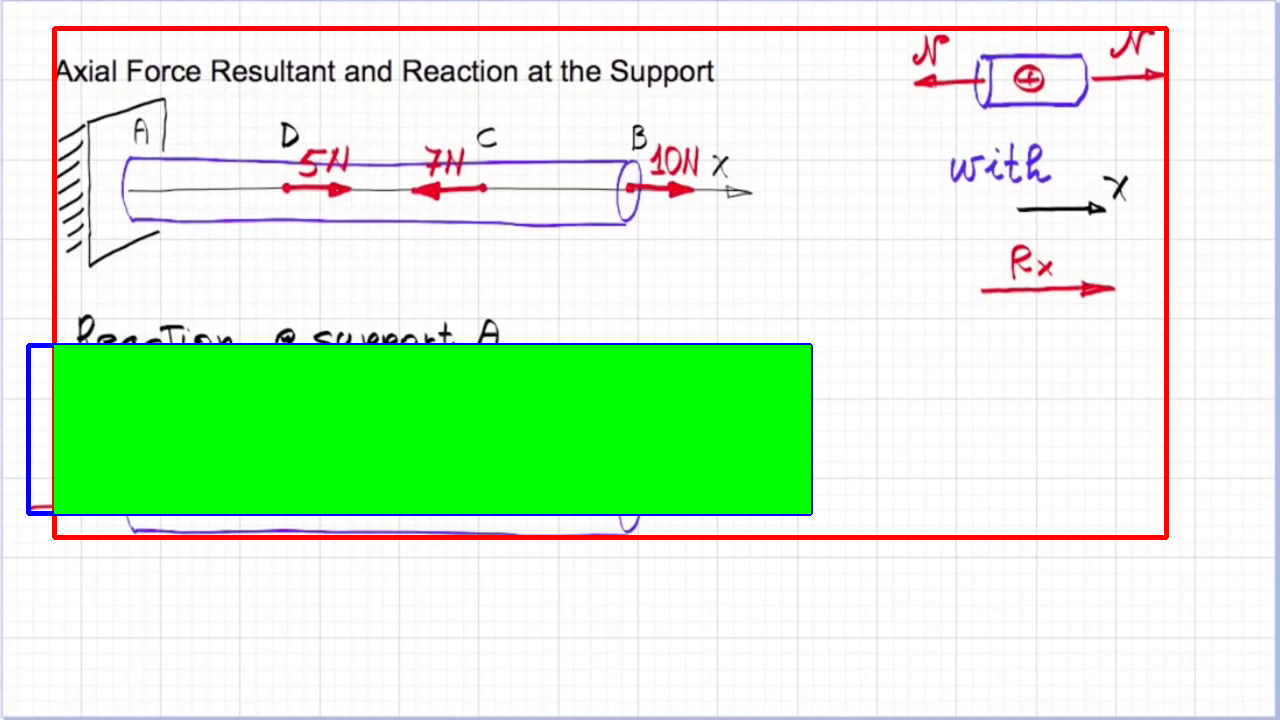 Axial Force Resultant and Reaction at the Support
N N
+
A D C B
5N 7N 10N X
with
X
Rx
Reaction @ support A